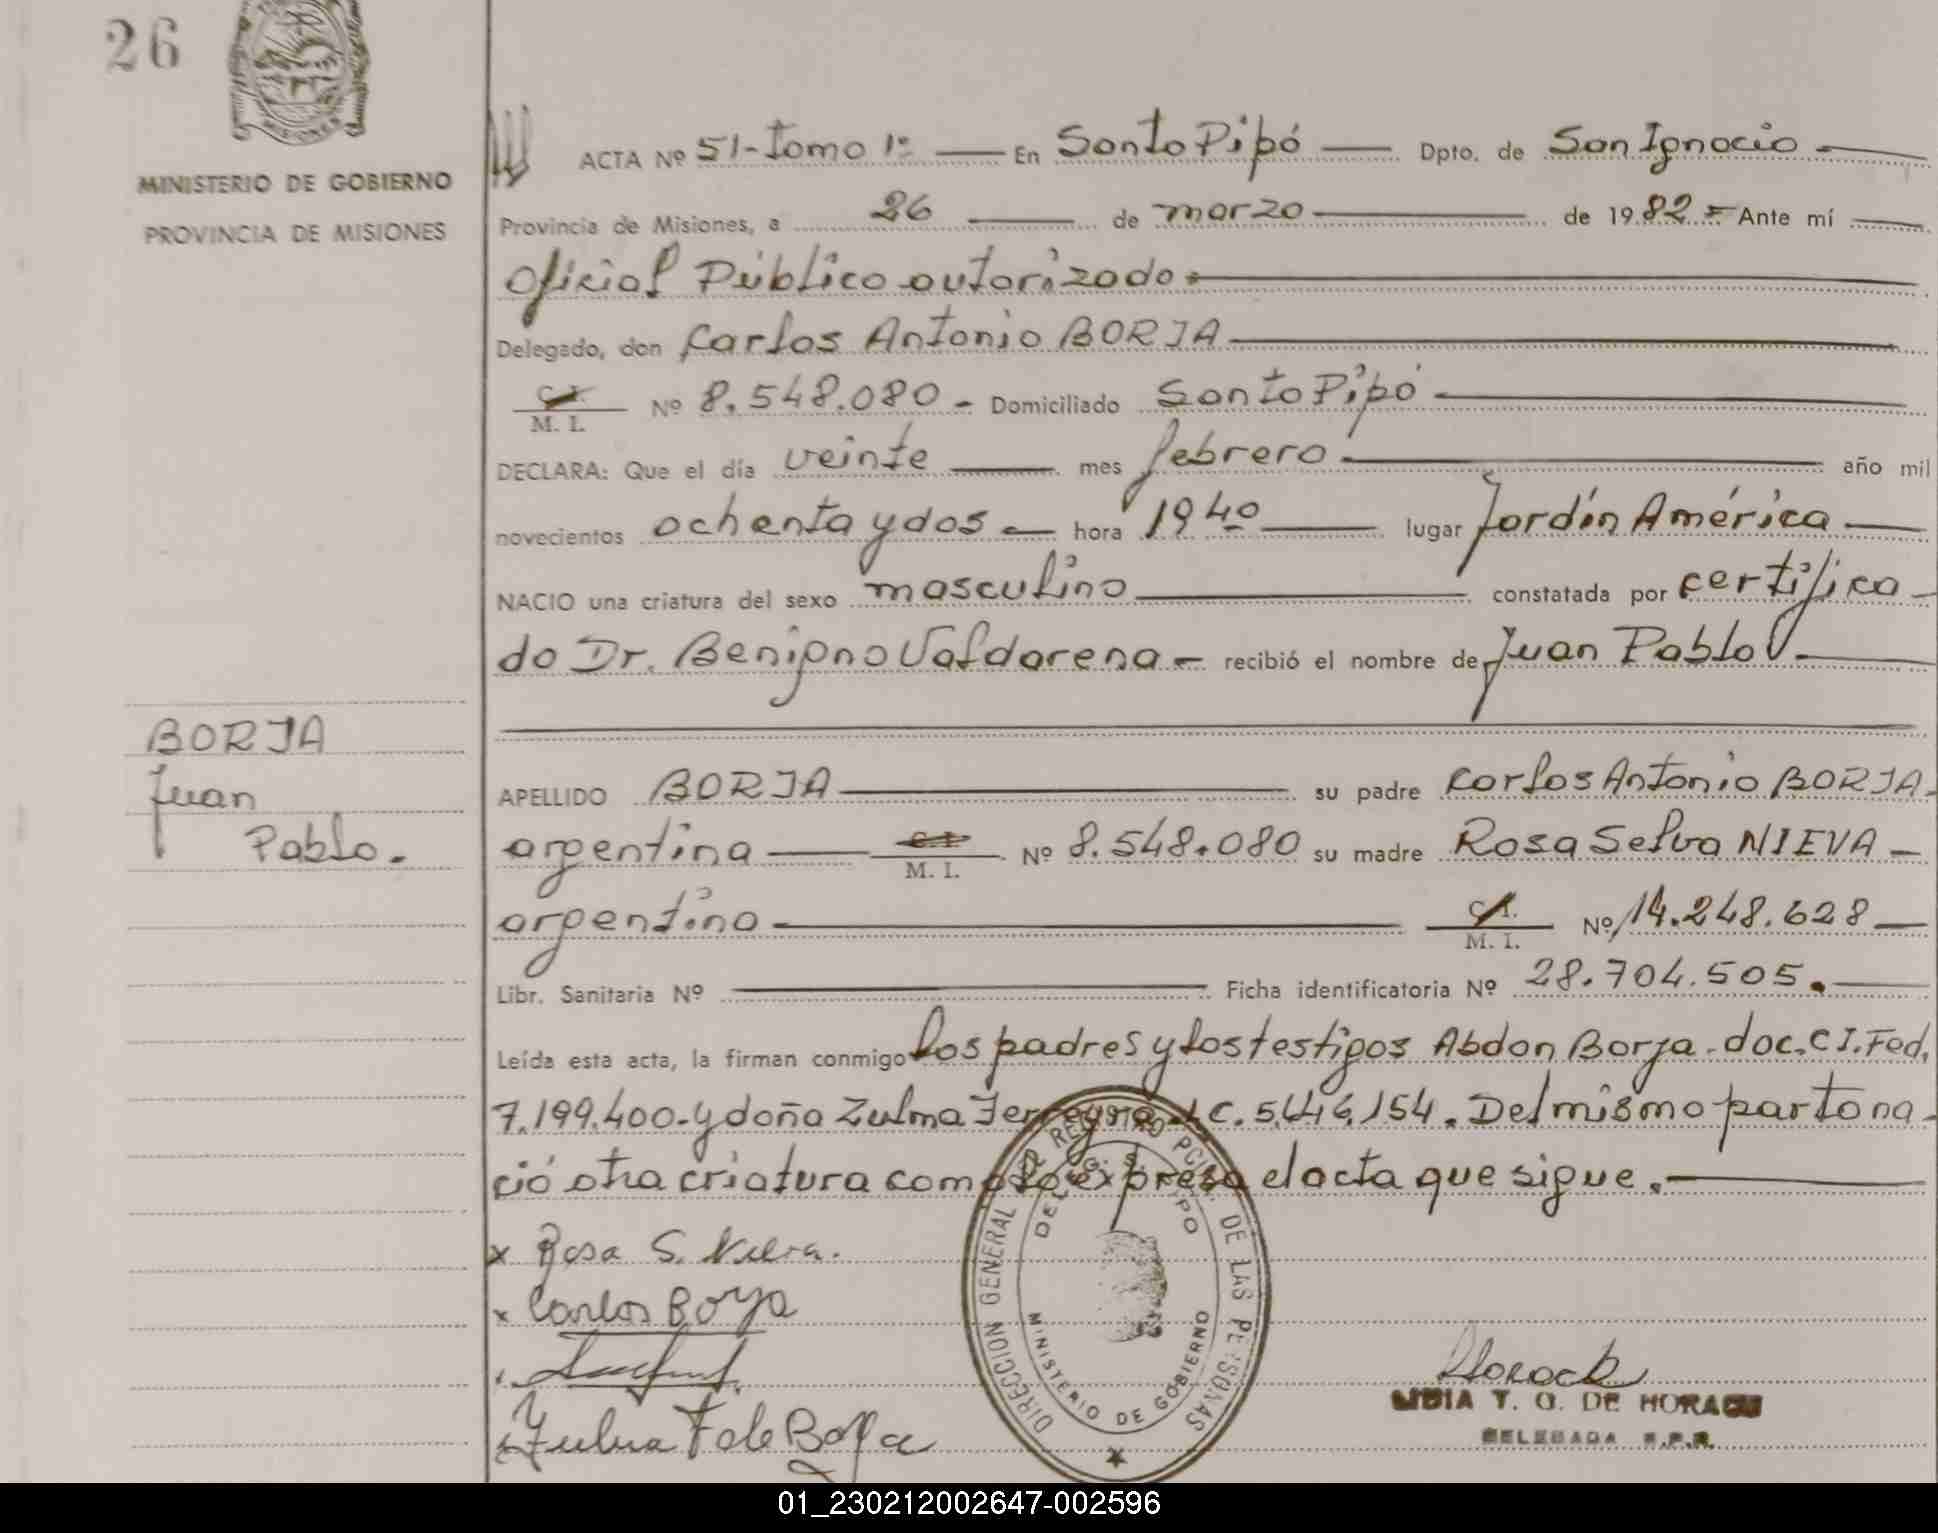 26
MISIONES
MINISTERIO DE GOBIERNO
PROVINCIA DE MISIONES
ACTA Nº 51-Tomo 1º — En Santo Pipó — Dpto. de San Ignacio —
Provincia de Misiones, a 26 — de marzo — de 1982.= Ante mí —
Oficial Público autorizado.—
Delegado, don Carlos Antonio BORJA —
C. I.
M. I. Nº 8.548.080 - Domiciliado Santo Pipó —
DECLARA: Que el día veinte — mes febrero — año mil
novecientos ochenta y dos — hora 19 40 — lugar Jardín América —
NACIO una criatura del sexo masculino — constatada por certifica-
do Dr. Benigno Valdarena — recibió el nombre de Juan Pablo —
BORJA
Juan
Pablo.
APELLIDO BORJA — su padre Carlos Antonio BORJA-
argentina — C. I.
M. I. Nº 8.548.080 su madre Rosa Selva NIEVA —
argentina — C. I.
M. I. Nº 14.248.628 —
Libr. Sanitaria Nº — Ficha identificatoria Nº 28.704.505. —
Leída esta acta, la firman conmigo los padres y los testigos Abdon Borja. doc. C I. Fed.
7.199.400.- y doña Zulma Ferreyra L C. 5.646.154. Del mismo parto na-
ció otra criatura como lo expresa el acta que sigue. —
x Rosa S. Nieva.
x Carlos Borja
Zulma F de Borja
DIRECCION GENERAL DE REGISTRO PCIAL. DE LAS PERSONAS
MINISTERIO DE GOBIERNO
LIDIA T. O. DE HORACK
DELEGADA R.P.P.
01_230212002647-002596